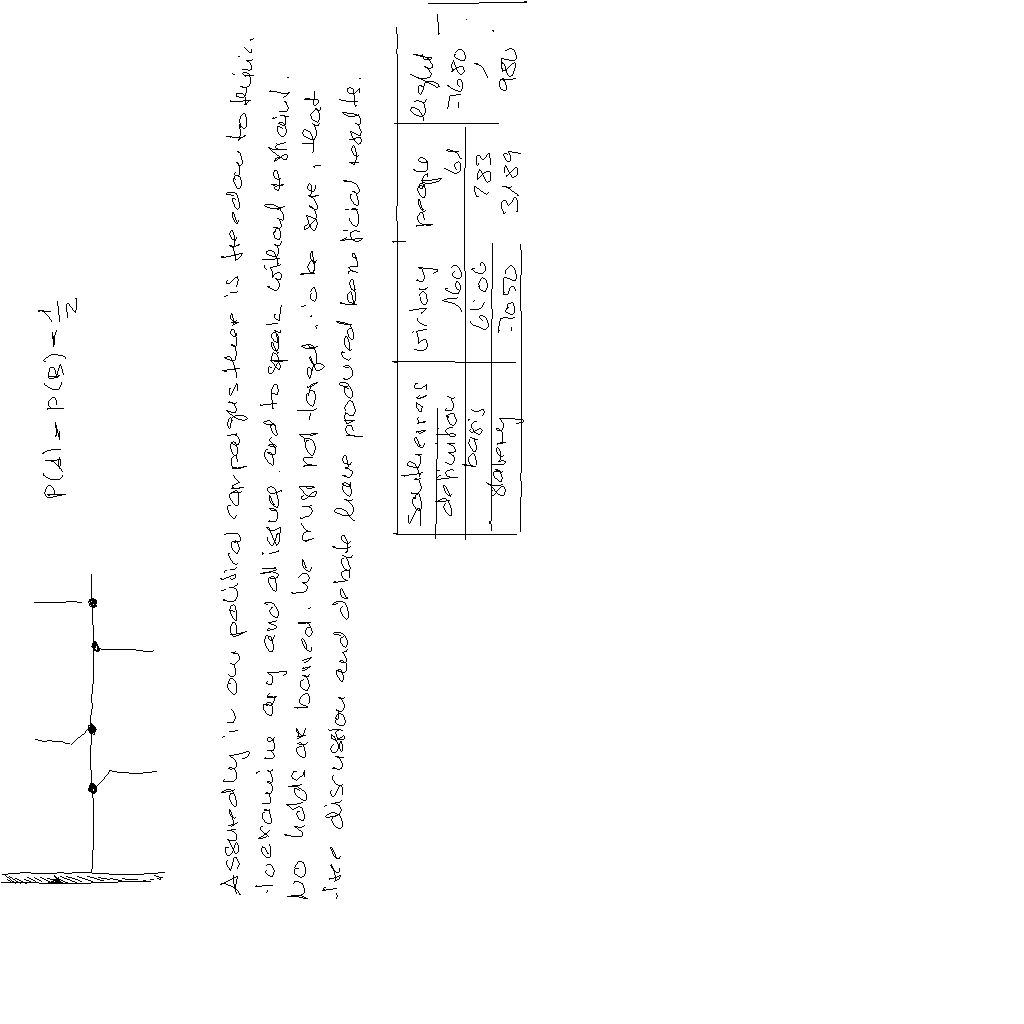 P(A) = P(B) = 1/2
Assuredly in our political campaigns there is freedom to think,
to examine any and all issues, and to speak without restraint.
No holds are barred. We must not forget, to be sure, that
free discussion and debate have produced beneficial results.
Southerners victory people light
definition 160 61 7680
basis 6506 783
slavery 7050 3189 980